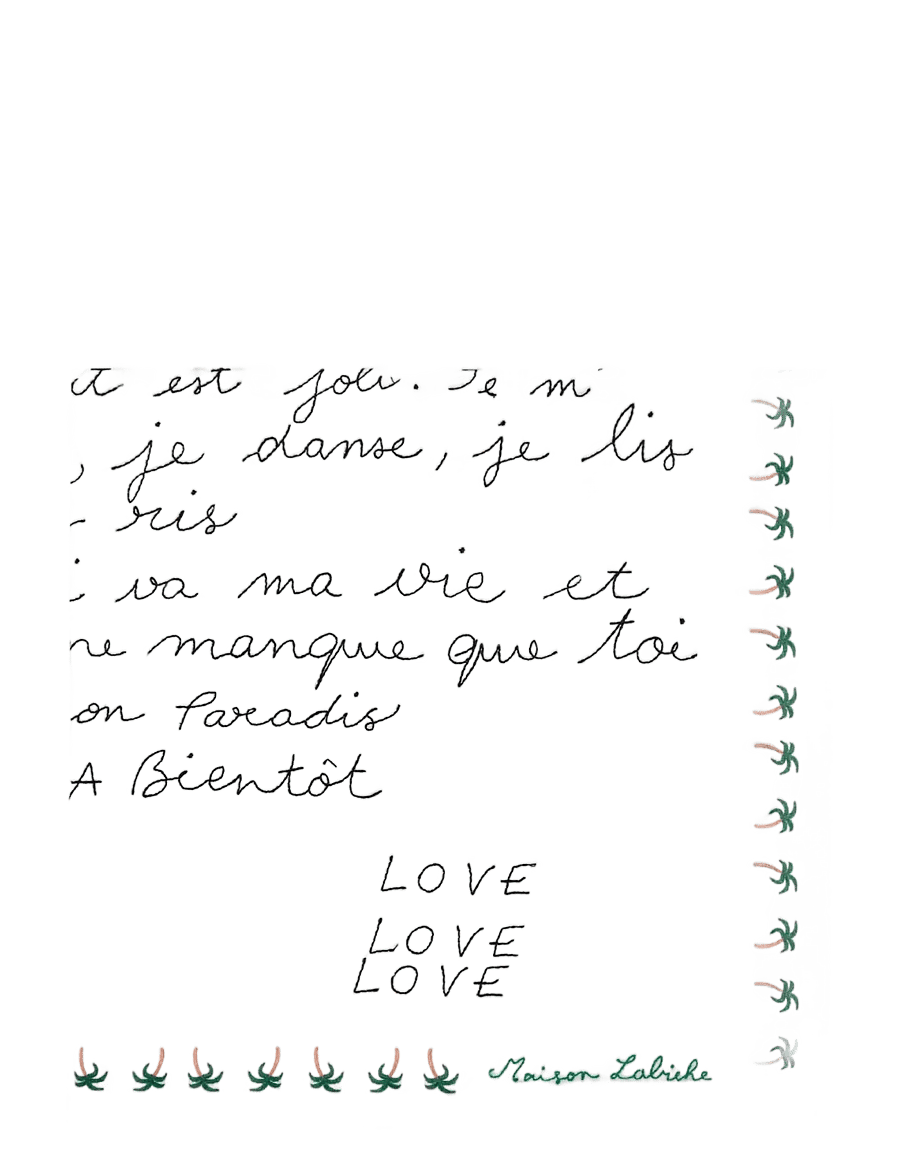 est joli. Je m'
, je danse, je lis
- ris
va ma vie et
ne manque que toi
on Paradis
A Bientôt
LOVE
LOVE
LOVE
Maison Labiche